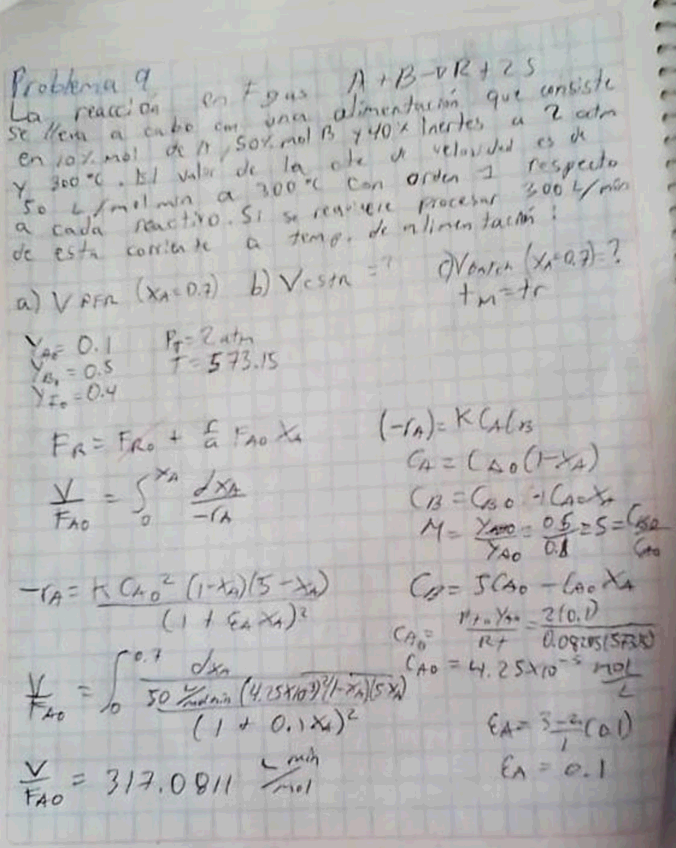 Problema 9
A + B → R + 2S
La reacción en f gas
Se lleva a cabo con una alimentación que consiste
en 10% mol de A, 50% mol B y 40% Inertes a 2 atm
y 300°C. El valor de la cte de velocidad es de
50 L/mol min a 300°C con orden 1 respecto
a cada reactivo. Si se requiere procesar 300 L/min
de esta corriente a temp. de alimentación:
a) V PFR (XA=0.7) b) VCSTR = ? c) VBatch (XA=0.7)=?
tm = tr
YA0 = 0.1 PT = 2 atm
YB0 = 0.5 T = 573.15
YI0 = 0.4
FR = FR0 + r/a FA0 XA
(-rA) = K CA CB
CA = CA0 (1-XA)
V/FA0 = ∫0^XA dXA/-rA
CB = CB0 - 1 CA0 XA
M = YA0/YA0 = 0.5/0.1 = 5 = CB0/CA0
-rA = K CA0² (1-XA)(5-XA)/(1 + εA XA)²
CB = 5CA0 - CA0 XA
CA0 = PT0 YA0/RT = 2(0.1)/0.08205(573.15)
CA0 = 4.25x10⁻³ mol/L
V/FA0 = ∫0^0.7 dXA/50 L/mol min (4.25x10⁻³)²(1-XA)(5-XA)/(1 + 0.1XA)²
εA = 3-2/1 (0.1)
εA = 0.1
V/FA0 = 317.0811 L min/mol